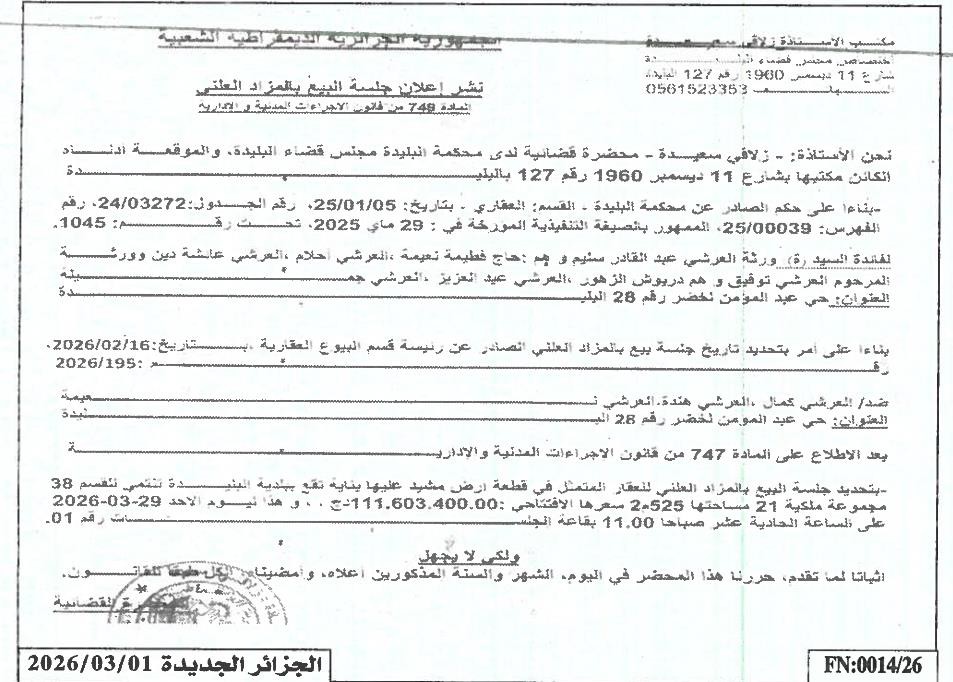 الجمهورية الجزائرية الديمقراطية الشعبية
مكتب الأستاذة زلاقي سعيـــدة
اختصاص مجلس قضاء البليـــدة
شارع 11 ديسمبر 1960 رقم 127 البليدة
0561523353
نشر إعلان جلسة البيع بالمزاد العلني
المادة 749 من قانون الاجراءات المدنية و الادارية
نحن الأستاذة: - زلاقي سعيـدة - محضرة قضائية لدى محكمة البليدة مجلس قضاء البليدة، والموقعـة ادنـاه
الكائن مكتبها بشارع 11 ديسمبر 1960 رقم 127 بالبليـــدة
-بناءا على حكم الصادر عن محكمة البليدة - القسم: العقاري - بتاريخ: 25/01/05، رقم الجـدول:24/03272، رقم
الفهرس: 25/00039، الممهور بالصيغة التنفيذية المؤرخة في : 29 ماي 2025، تحـت رقـم: 1045.
لفائدة السيد (ة) ورثة العرشي عبد القادر سليم و هم :حاج فطيمة نعيمة ،العرشي أحلام ،العرشي عائشة دين وورثـة
المرحوم العرشي توفيق و هم دريوش الزهور ،العرشي عبد العزيز ،العرشي جميـلة
العنوان: حي عبد المومن لخضر رقم 28 البليـــدة
بناءا على أمر بتحديد تاريخ جلسة بيع بالمزاد العلني الصادر عن رئيسة قسم البيوع العقارية ،بـتاريخ:2026/02/16،
رقـــم :2026/195
ضد/ العرشي كمال ،العرشي هندة،العرشي نـــعيمة
العنوان: حي عبد المومن لخضر رقم 28 البـــليدة
بعد الاطلاع على المادة 747 من قانون الاجراءات المدنية والاداريـــة
-بتحديد جلسة البيع بالمزاد العلني للعقار المتمثل في قطعة ارض مشيد عليها بناية تقع ببلدية البليـدة تنتمي للقسم 38
مجموعة ملكية 21 مساحتها 525م2 سعرها الافتتاحي :111.603.400.00-دج . ، و هذا ليـوم الاحد 29-03-2026
على الساعة الحادية عشر صباحا 11.00 بقاعة الجلســـات رقم 01.
ولكي لا يجهل
اثباتا لما تقدم، حررنا هذا المحضر في اليوم، الشهر والسنة المذكورين أعلاه، وأمضيناه الكل طبقا للقانـــون.
المحضرة القضائية
الجزائر الجديدة 2026/03/01
FN:0014/26